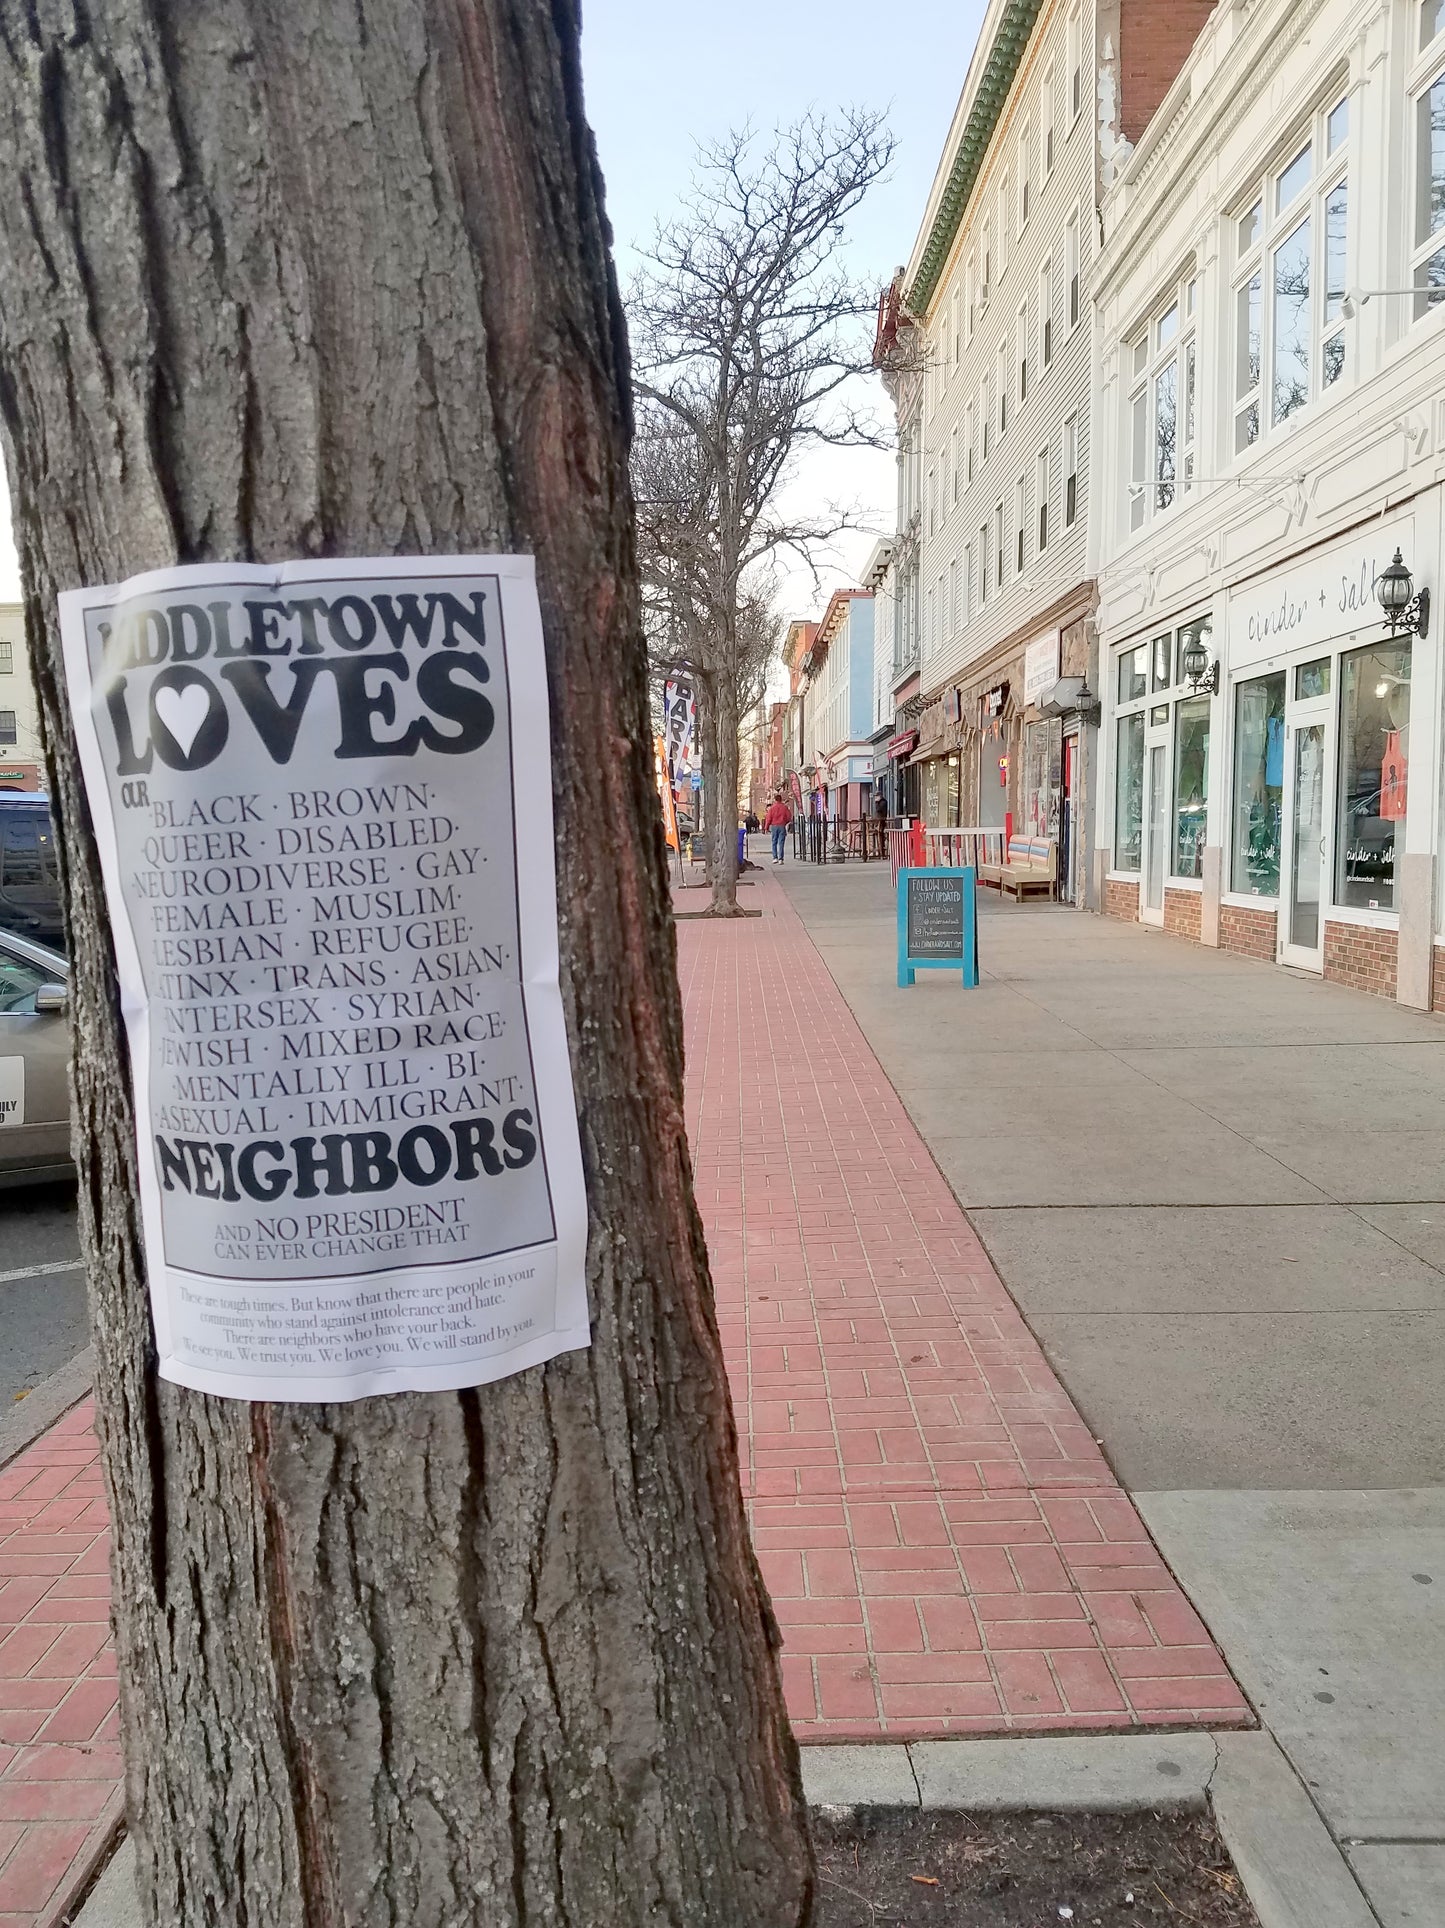 MIDDLETOWN
LOVES
OUR
·BLACK · BROWN·
·QUEER · DISABLED·
·NEURODIVERSE · GAY·
·FEMALE · MUSLIM·
LESBIAN · REFUGEE·
ATINX · TRANS · ASIAN·
INTERSEX · SYRIAN·
JEWISH · MIXED RACE·
·MENTALLY ILL · BI·
·ASEXUAL · IMMIGRANT·
NEIGHBORS
AND NO PRESIDENT
CAN EVER CHANGE THAT
These are tough times. But know that there are people in your
community who stand against intolerance and hate.
There are neighbors who have your back.
We see you. We trust you. We love you. We will stand by you.
BAR
cinder + salt
FOLLOW US
+ STAY UPDATED
CINDER + SALT
@cinderandsalt
WWW.CINDERANDSALT.COM
cinder + salt
cinder + salt
@cinderandsalt
ILY